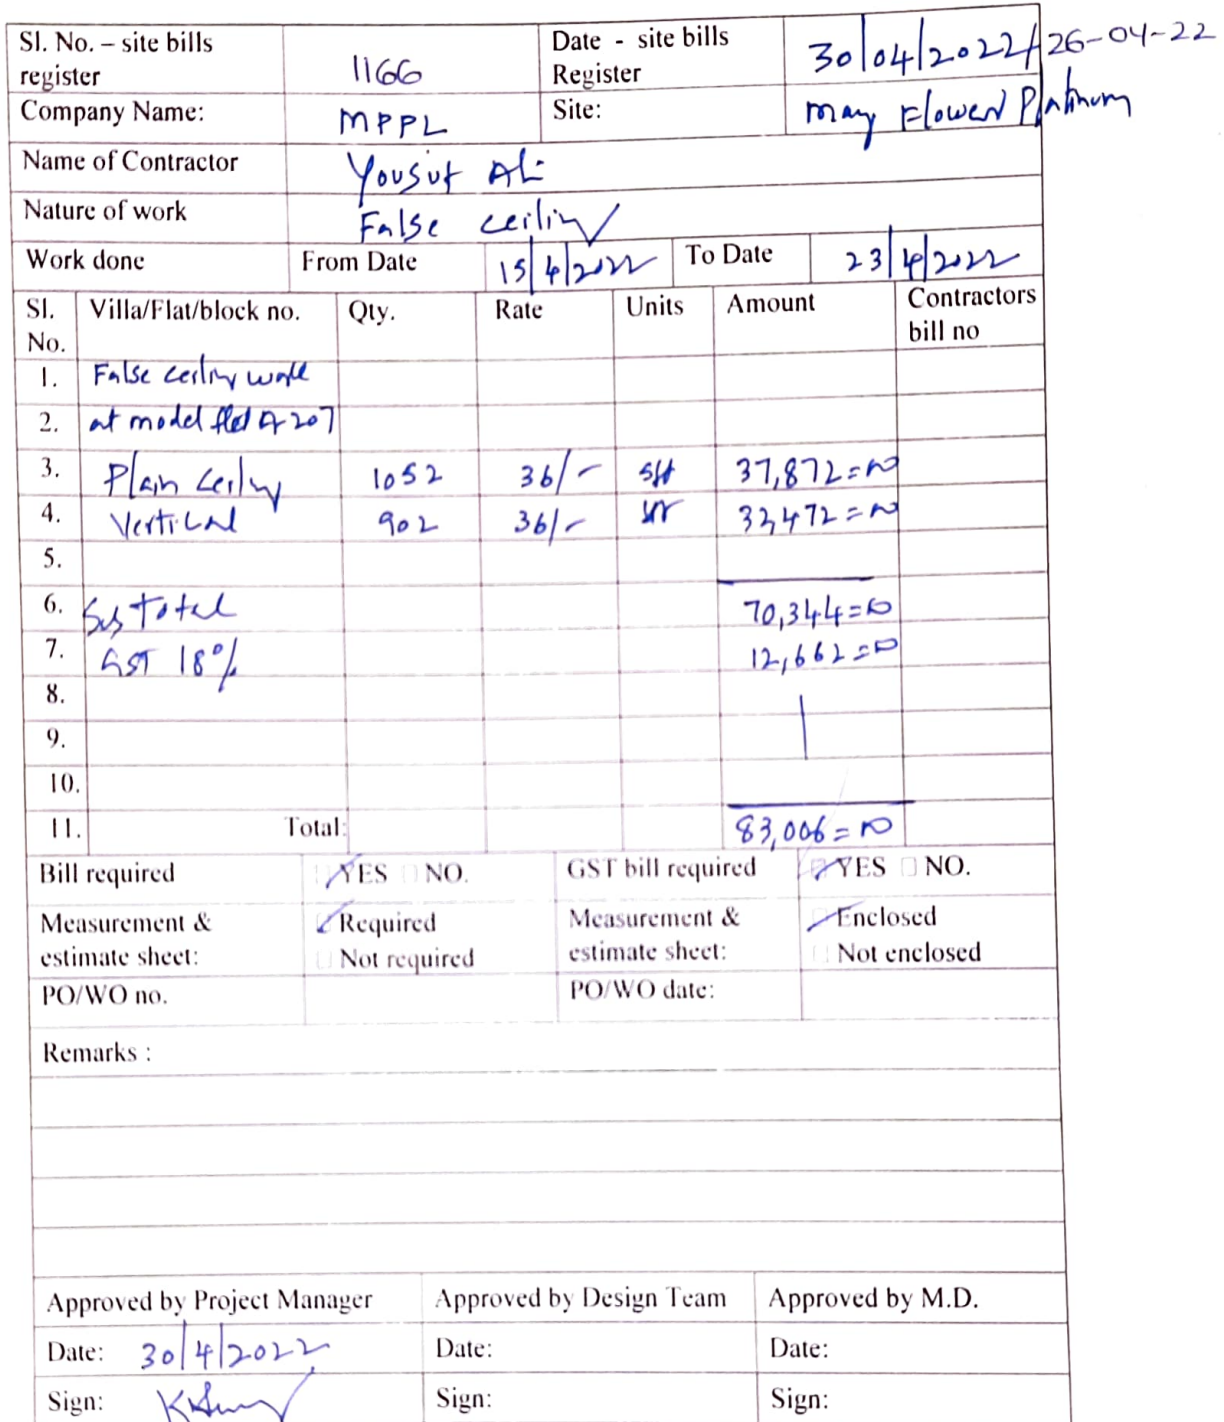 Sl. No. – site bills register 1166 Date - site bills Register 30/04/2022/26-04-22
Company Name: MPPL Site: May Flower Platinum
Name of Contractor Yousuf Ali
Nature of work False ceiling
Work done From Date 15/4/2022 To Date 23/4/2022
Sl. No. Villa/Flat/block no. Qty. Rate Units Amount Contractors bill no
1. False ceiling work
2. at model flat A 207
3. Plain ceiling 1052 36/- sft 37,872=00
4. Vertical 902 36/- sft 32,472=00
5.
6. Sub Total 70,344=00
7. GST 18% 12,662=00
8.
9.
10.
11. Total: 83,006=00
Bill required YES NO. GST bill required YES NO.
Measurement & estimate sheet: Required Not required Measurement & estimate sheet: Enclosed Not enclosed
PO/WO no. PO/WO date:
Remarks :
Approved by Project Manager Approved by Design Team Approved by M.D.
Date: 30/4/2022 Date: Date:
Sign: Sign: Sign: